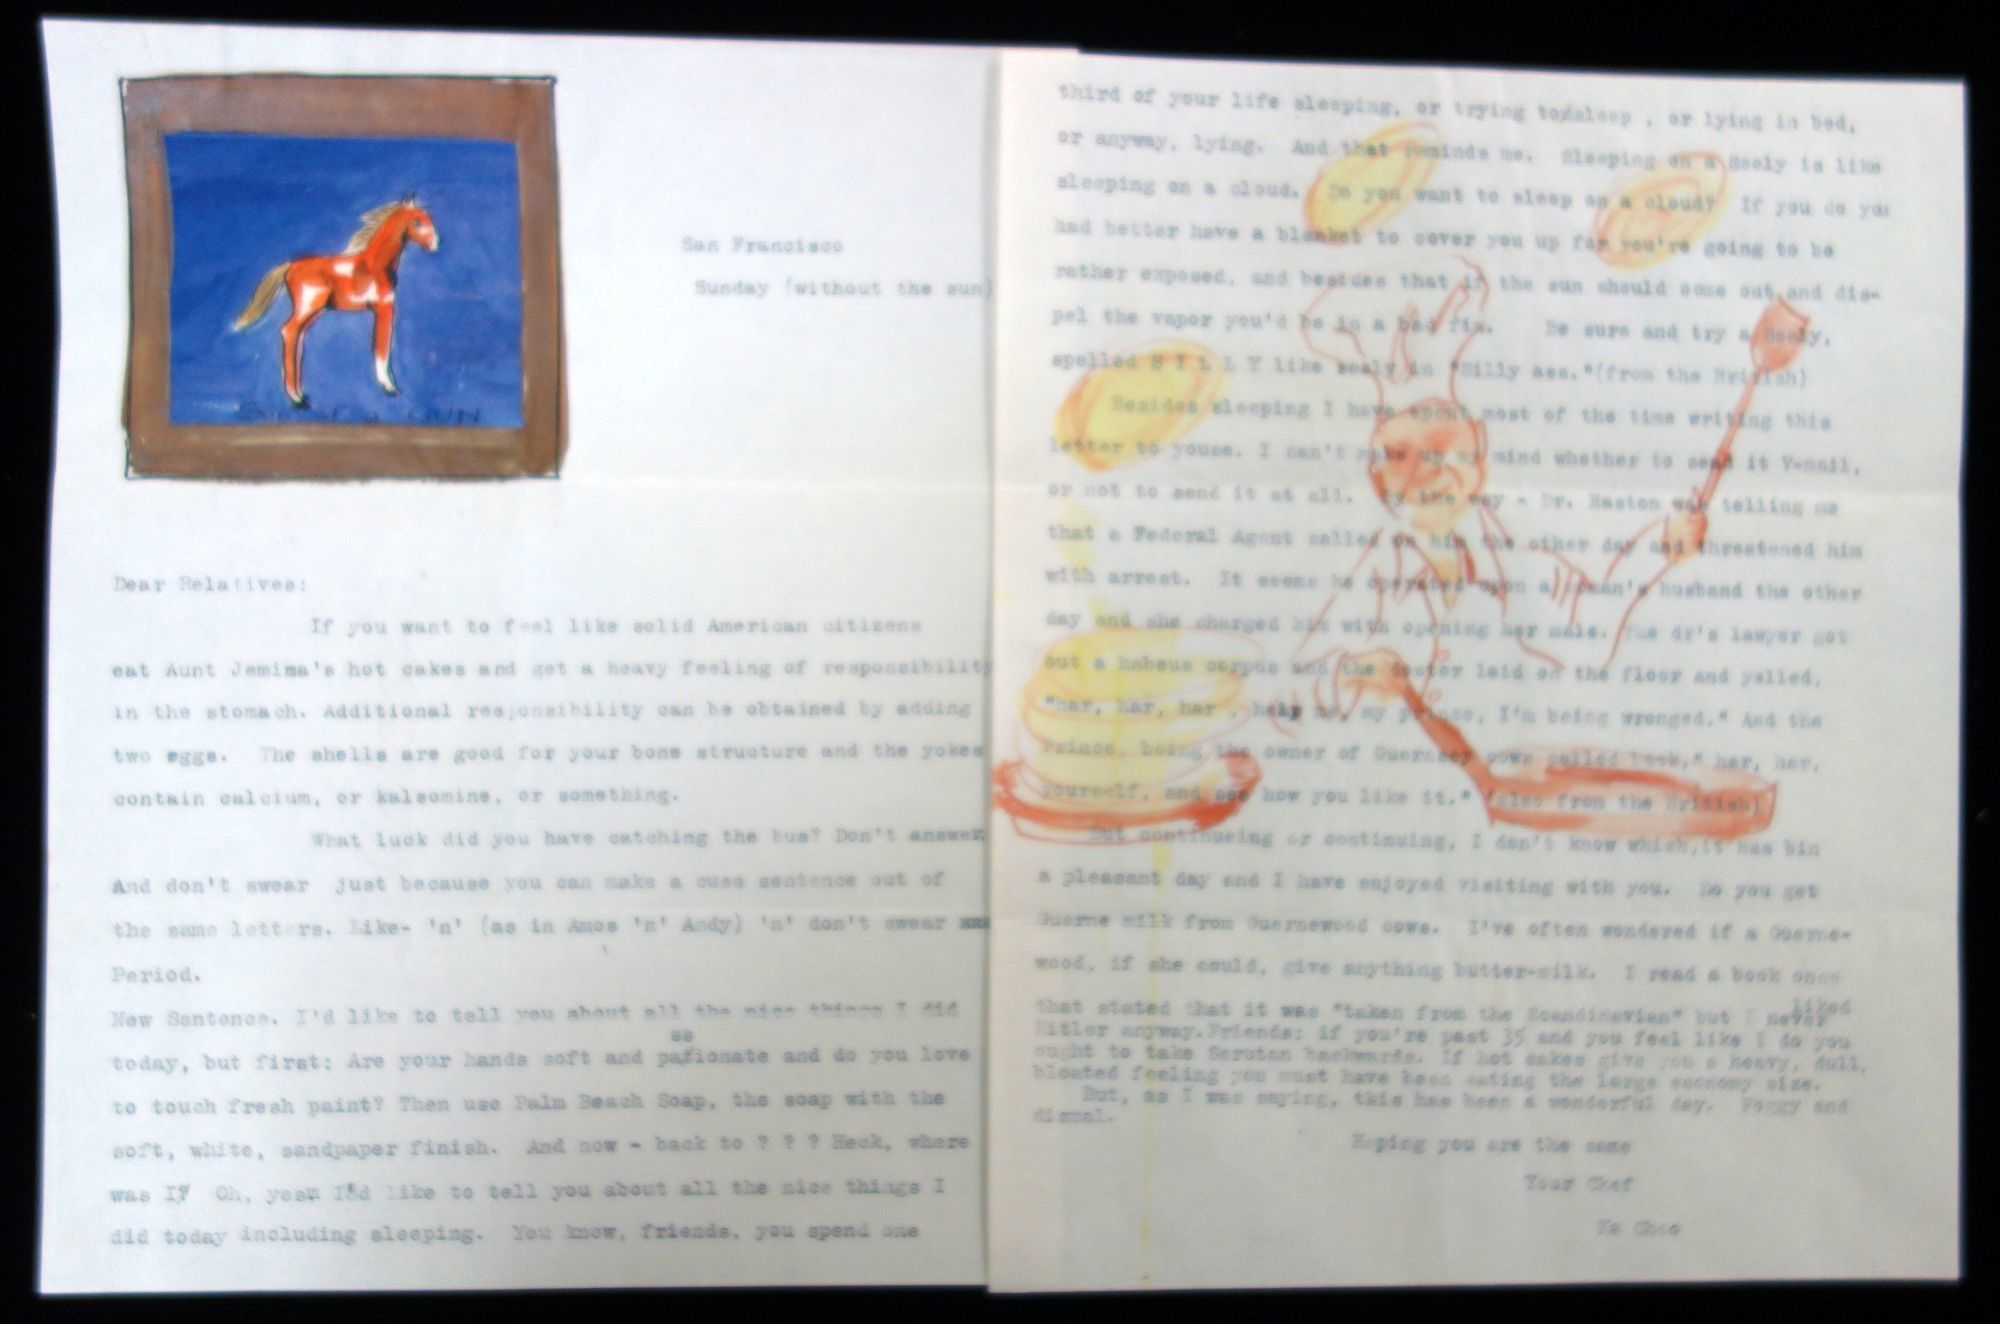 San Francisco
Sunday (without the sun)
Dear Relatives:
If you want to feel like solid American citizens
eat Aunt Jemima's hot cakes and get a heavy feeling of responsibility
in the stomach. Additional responsibility can be obtained by adding
two eggs. The shells are good for your bone structure and the yokes
contain calcium, or kalsomine, or something.
What luck did you have catching the bus? Don't answer
And don't swear just because you can make a cuss sentence out of
the same letters. Like- 'n' (as in Amos 'n' Andy) 'n' don't swear xxx
Period.
New Sentence. I'd like to tell you about all the nice things I did
ss
today, but first: Are your hands soft and pazionate and do you love
to touch fresh paint? Then use Palm Beach Soap, the soap with the
soft, white, sandpaper finish. And now - back to ? ? ? Heck, where
was I? Oh, yes I'd like to tell you about all the nice things I
did today including sleeping. You know, friends, you spend one
GUN
third of your life sleeping, or trying to sleep , or lying in bed,
or anyway, lying. And that reminds me. Sleeping on a Seely is like
sleeping on a cloud. Do you want to sleep on a cloud? If you do you
had better have a blanket to cover you up for you're going to be
rather exposed, and besides that if the sun should come out and dis-
pel the vapor you'd be in a bad fix. Be sure and try a Seely,
spelled S I L L Y like sealy in "Silly ass."(from the British)
Besides sleeping I have spent most of the time writing this
letter to youse. I can't make up my mind whether to send it V-mail,
or not to send it at all. By the way - Dr. Easton was telling me
that a Federal Agent called on him the other day and threatened him
with arrest. It seems he operated upon a woman's husband the other
day and she charged him with opening her male. The dr's lawyer got
out a habeus corpus and the doctor laid on the floor and yelled,
"har, har, har , help me, my prince, I'm being wronged." And the
Prince, being the owner of Guernsey cows called back," har, har,
yourself, and see how you like it." (also from the British)
But continueing or continuing, I don't know which,it has bin
a pleasant day and I have enjoyed visiting with you. Do you get
Guerne milk from Guernewood cows. I've often wondered if a Guerne-
wood, if she could, give anything butter-milk. I read a book once
that stated that it was "taken from the Scandinavian" but I never liked
Hitler anyway.Friends: if you're past 35 and you feel like I do you
ought to take Serutan backwards. If hot cakes give you a heavy, dull,
bloated feeling you must have been eating the large economy size.
But, as I was saying, this has been a wonderful day. Foggy and
dismal.
Hoping you are the same
Your Chef
Ya Choo